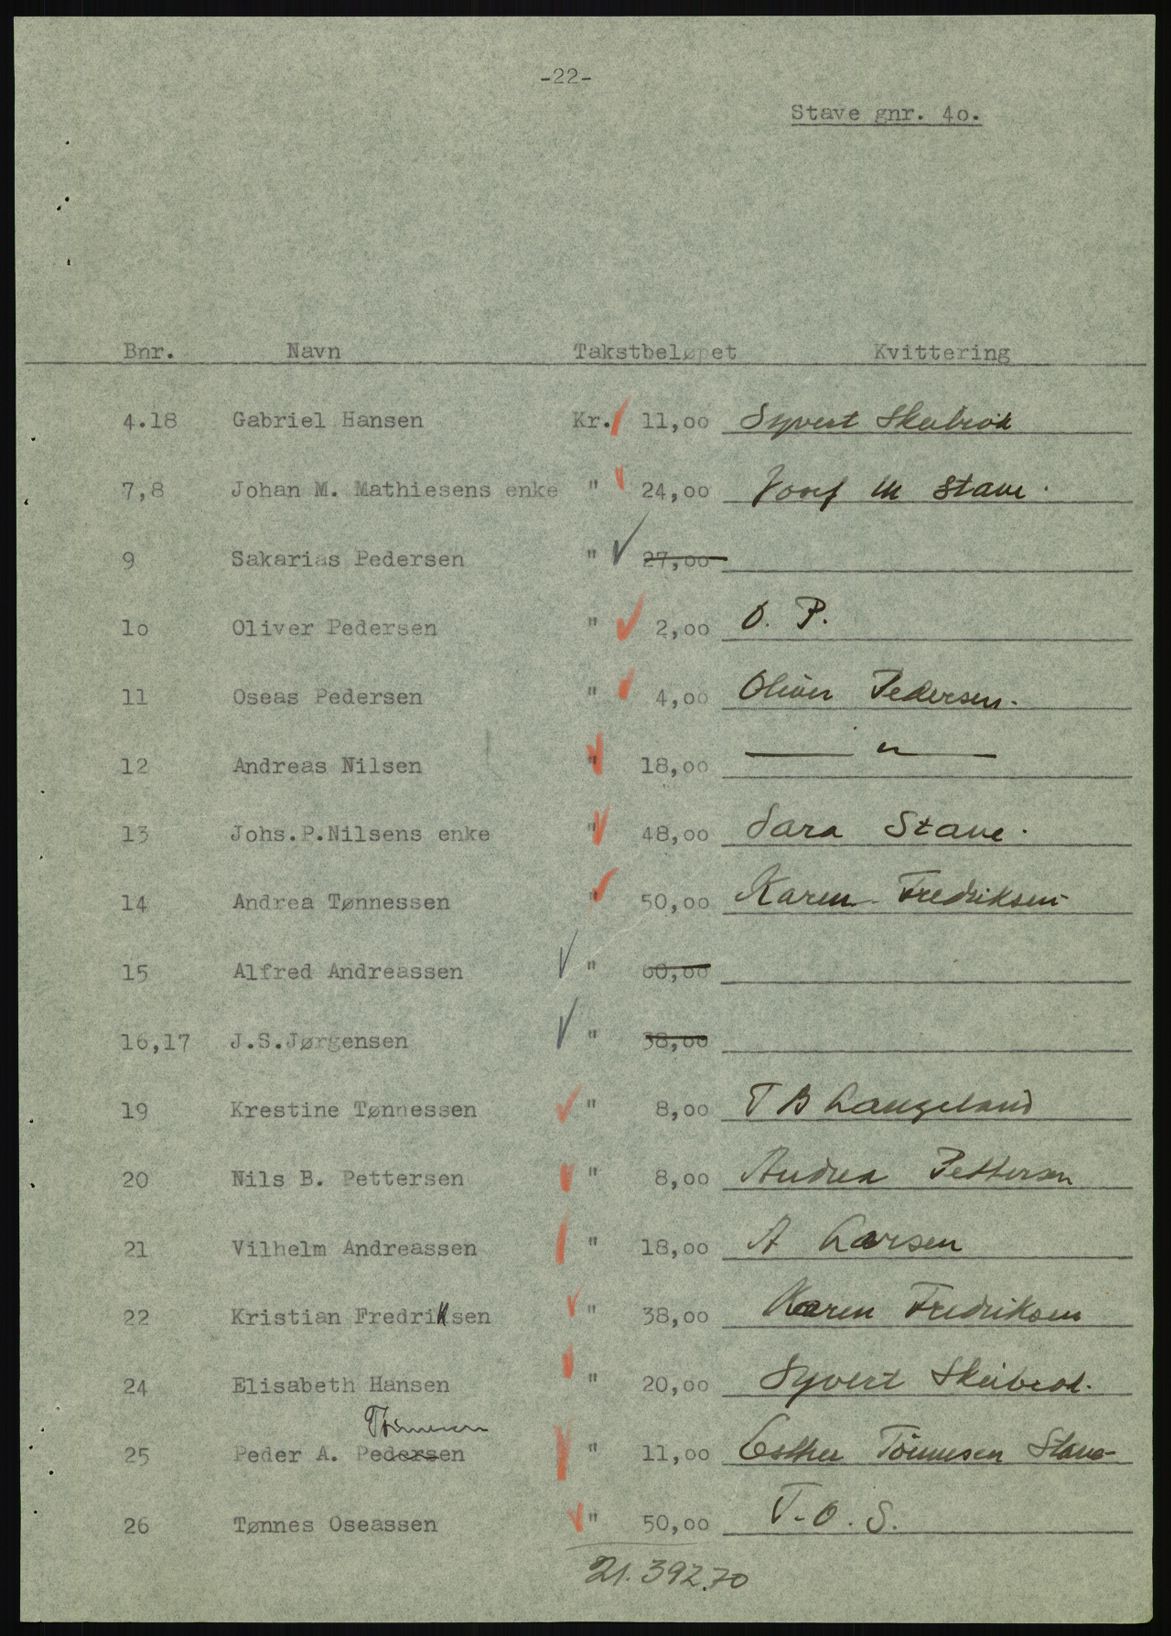 -22-
Stave gnr. 4o.
Bnr. Navn Takstbeløpet Kvittering
4.18 Gabriel Hansen Kr. 11,oo Syvert Skeibrok
7,8 Johan M. Mathiesens enke " 24,oo Josef M Stave.
9 Sakarias Pedersen " 27,oo
1o Oliver Pedersen " 2,oo O. P.
11 Oseas Pedersen " 4,oo Oliver Pedersen.
12 Andreas Nilsen " 18,oo — " —
13 Johs.P.Nilsens enke " 48,oo Sara Stave.
14 Andrea Tønnessen " 50,oo Karen Fredriksen
15 Alfred Andreassen " 60,oo
16,17 J.S.Jørgensen " 38,oo
19 Krestine Tønnessen " 8,oo T B Langeland
20 Nils B. Pettersen " 8,oo Andrea Pettersen
21 Vilhelm Andreassen " 18,oo A Larsen
22 Kristian Fredriksen " 38,oo Karen Fredriksen
24 Elisabeth Hansen " 20,oo Syvert Skeibrok.
Tönnesen
25 Peder A. Pedersen " 11,oo Esther Tönnesen Stave
26 Tønnes Oseassen " 50,oo T. O. S.
21.392.70